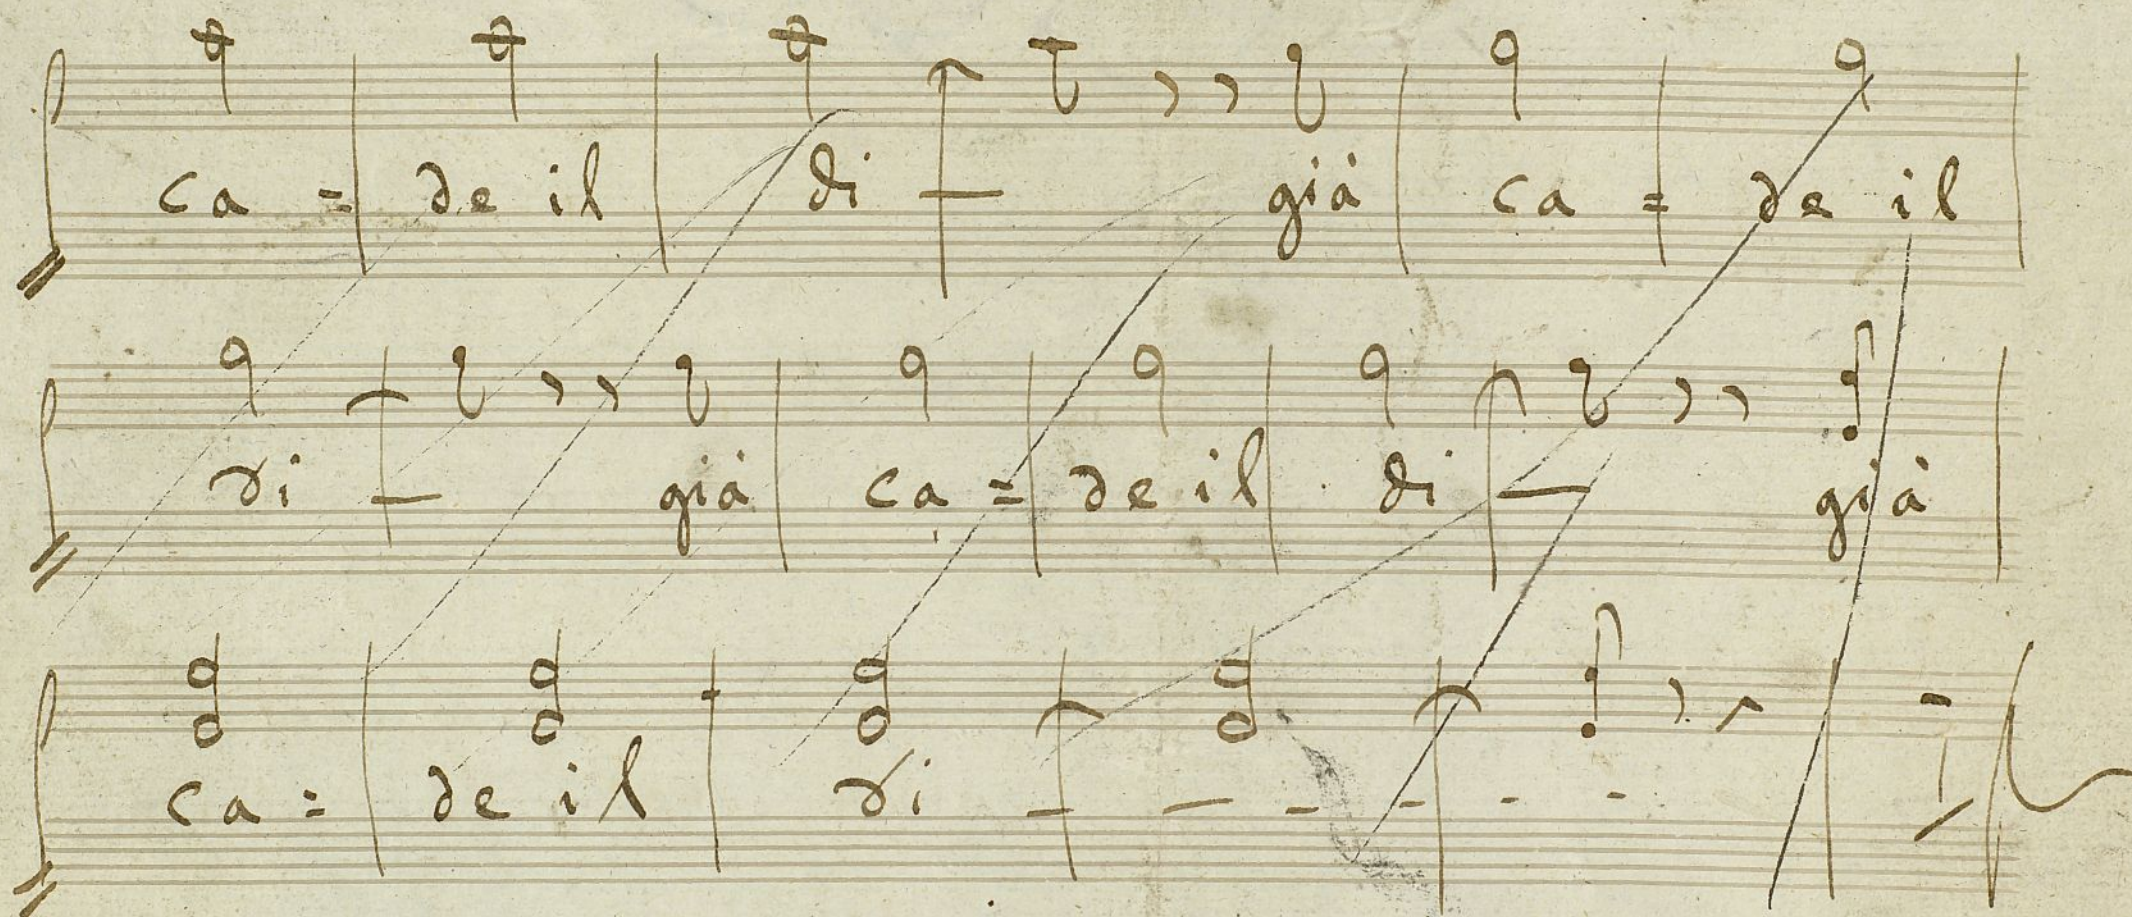 ca = de il di — già ca = de il
di — già ca = de il di — già
ca = de il di — — - - - -